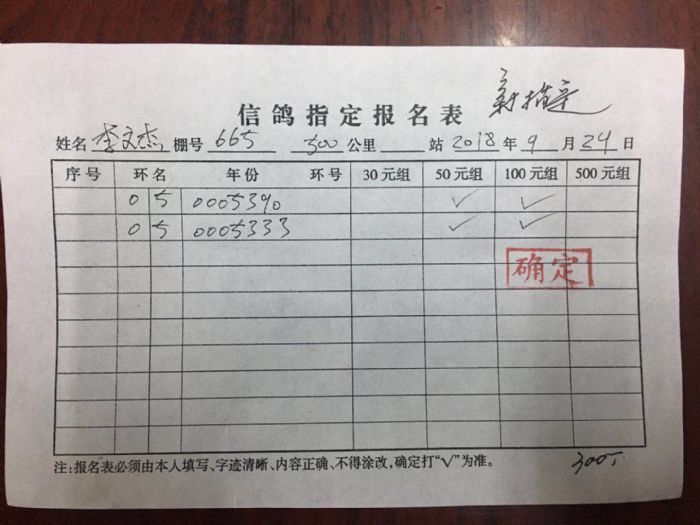 信鸽指定报名表 新指定
姓名 李文杰 棚号 665 300 公里 站 2018 年 9 月 24 日
序号 环名 年份 环号 30元组 50元组 100元组 500元组
05 0005390 ✓ ✓
05 0005333 ✓ ✓
确定
注:报名表必须由本人填写、字迹清晰、内容正确、不得涂改,确定打“√”为准。 300